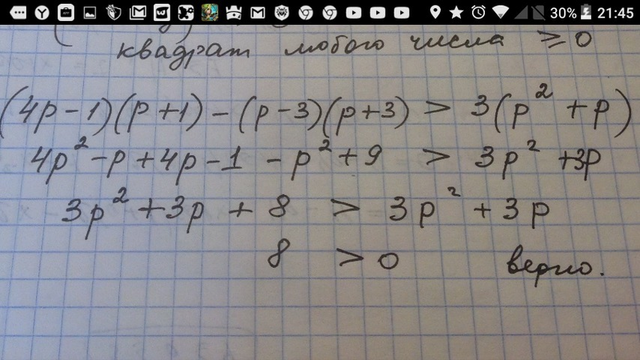 30% 21:45
квадрат любого числа ≥ 0
(4p-1)(p+1) - (p-3)(p+3) > 3(p² + p)
4p² - p + 4p - 1 - p² + 9 > 3p² + 3p
3p² + 3p + 8 > 3p² + 3p
8 > 0 верно.